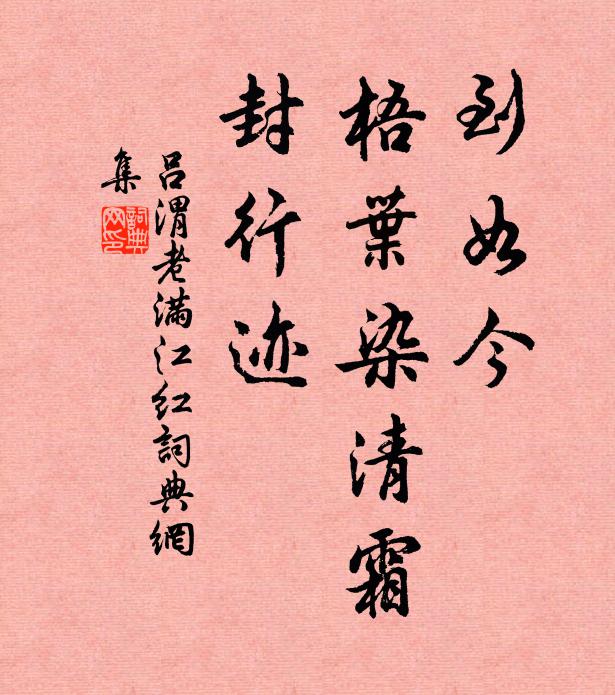 到如今
梧葉染清霜
封行迹
吕渭老滿江红詞典網
集
詞典
网印